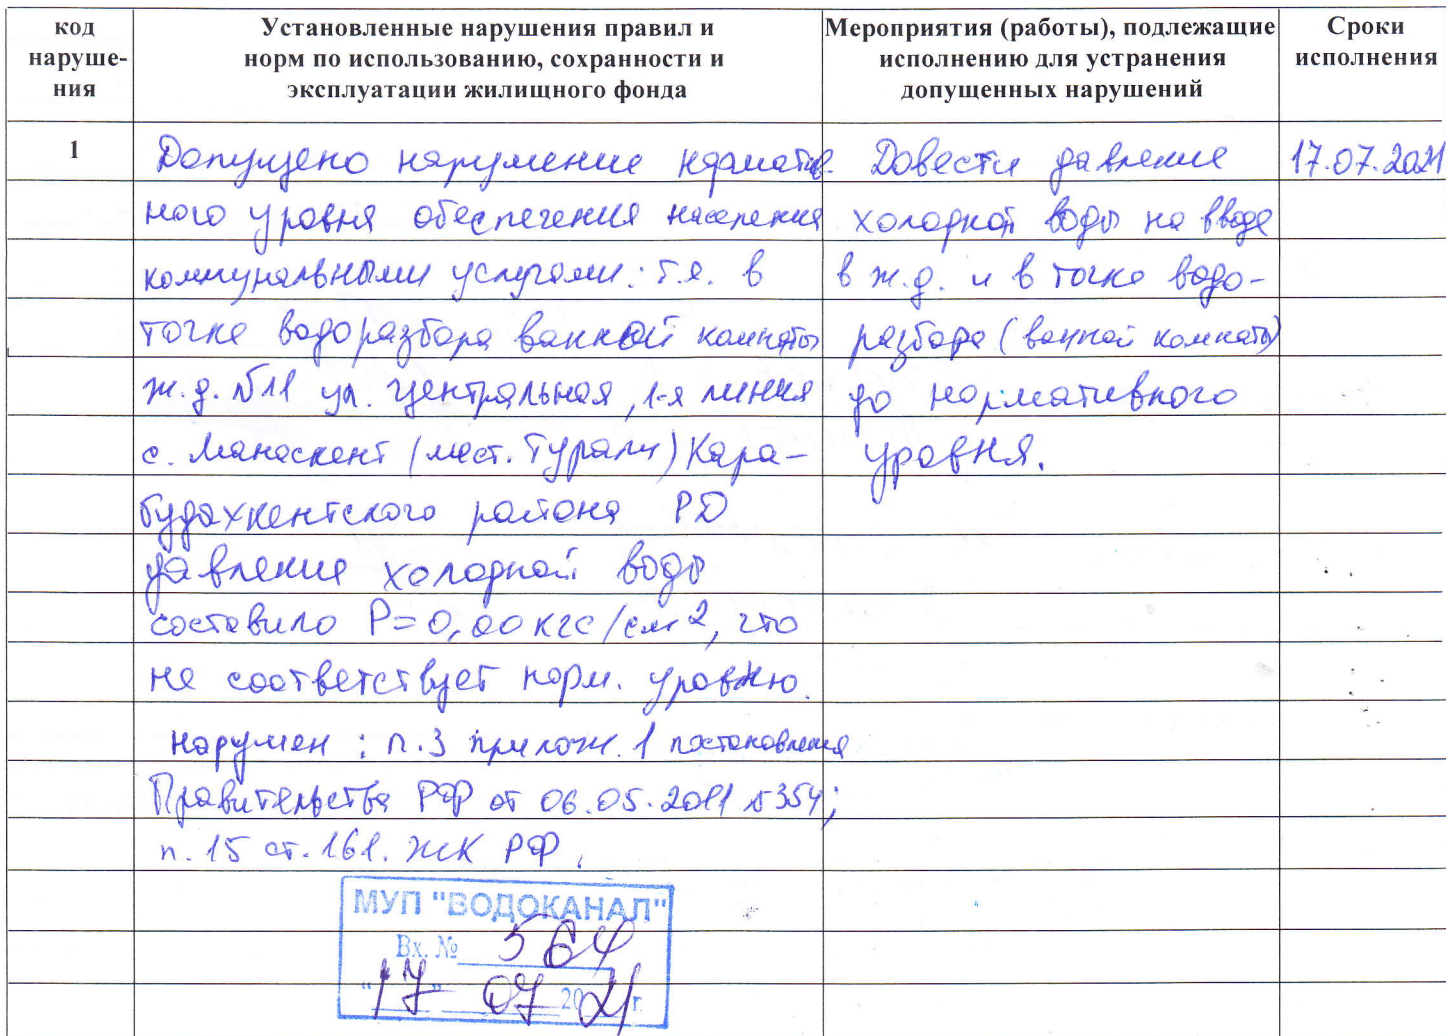 код наруше- ния
Установленные нарушения правил и норм по использованию, сохранности и эксплуатации жилищного фонда
Мероприятия (работы), подлежащие исполнению для устранения допущенных нарушений
Сроки исполнения
1
Допущено нарушение норматив-
ного уровня обеспечения населения
коммунальными услугами: т.е. в
точке водоразбора ванной комнаты
ж.д. №11 ул. Центральная, 1-я линия
с. Манаскент (мест. Турали) Кара-
будахкентского района РД
давление холодной воды
составило Р=0,00 кгс/см2, что
не соответствует норм. уровню.
Нарушен: п.3 прилож. 1 постановления
Правительства РФ от 06.05.2011 №354;
п. 15 ст. 161. ЖК РФ.
Довести давление
холодной воды на вводе
в ж.д. и в точке водо-
разбора (ванной комнаты)
до нормативного
уровня.
17.07.2021
МУП "ВОДОКАНАЛ"
Вх. № 564
"17" 07 2021 г.